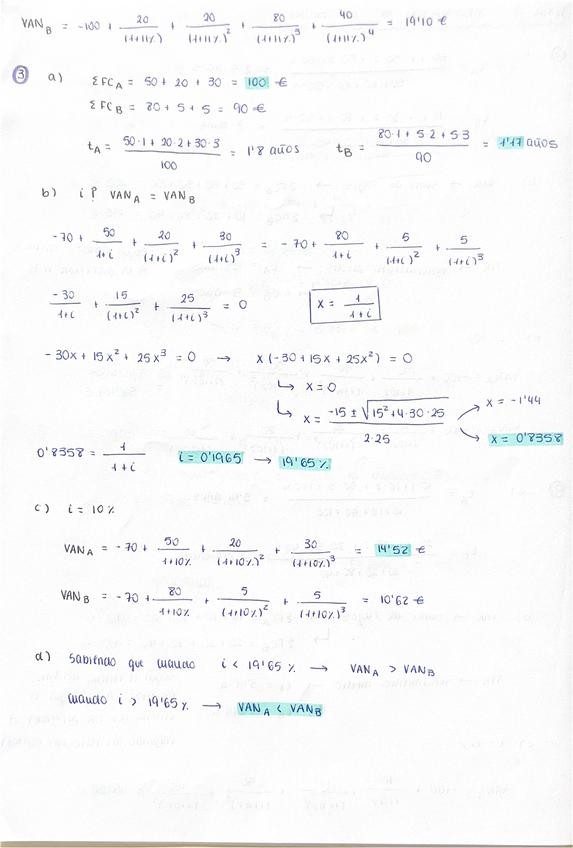 VAN_B = -100 + 20/(1+11%) + 20/(1+11%)² + 80/(1+11%)³ + 40/(1+11%)⁴ = 19'10 €
③ a) ΣFC_A = 50 + 20 + 30 = 100 €
ΣFC_B = 80 + 5 + 5 = 90 €
t_A = (50·1 + 20·2 + 30·3)/100 = 1'8 años t_B = (80·1 + 5·2 + 5·3)/90 = 1'17 años
b) i? VAN_A = VAN_B
-70 + 50/(1+i) + 20/(1+i)² + 30/(1+i)³ = -70 + 80/(1+i) + 5/(1+i)² + 5/(1+i)³
-30/(1+i) + 15/(1+i)² + 25/(1+i)³ = 0 x = 1/(1+i)
-30x + 15x² + 25x³ = 0 → x(-30 + 15x + 25x²) = 0
↳ x = 0
↳ x = (-15 ± √(15² + 4·30·25))/(2·25) x = -1'44
x = 0'8358
0'8358 = 1/(1+i) i = 0'1965 → 19'65%
c) i = 10%
VAN_A = -70 + 50/(1+10%) + 20/(1+10%)² + 30/(1+10%)³ = 14'52 €
VAN_B = -70 + 80/(1+10%) + 5/(1+10%)² + 5/(1+10%)³ = 10'62 €
d) Sabiendo que cuando i < 19'65% → VAN_A > VAN_B
cuando i > 19'65% → VAN_A < VAN_B